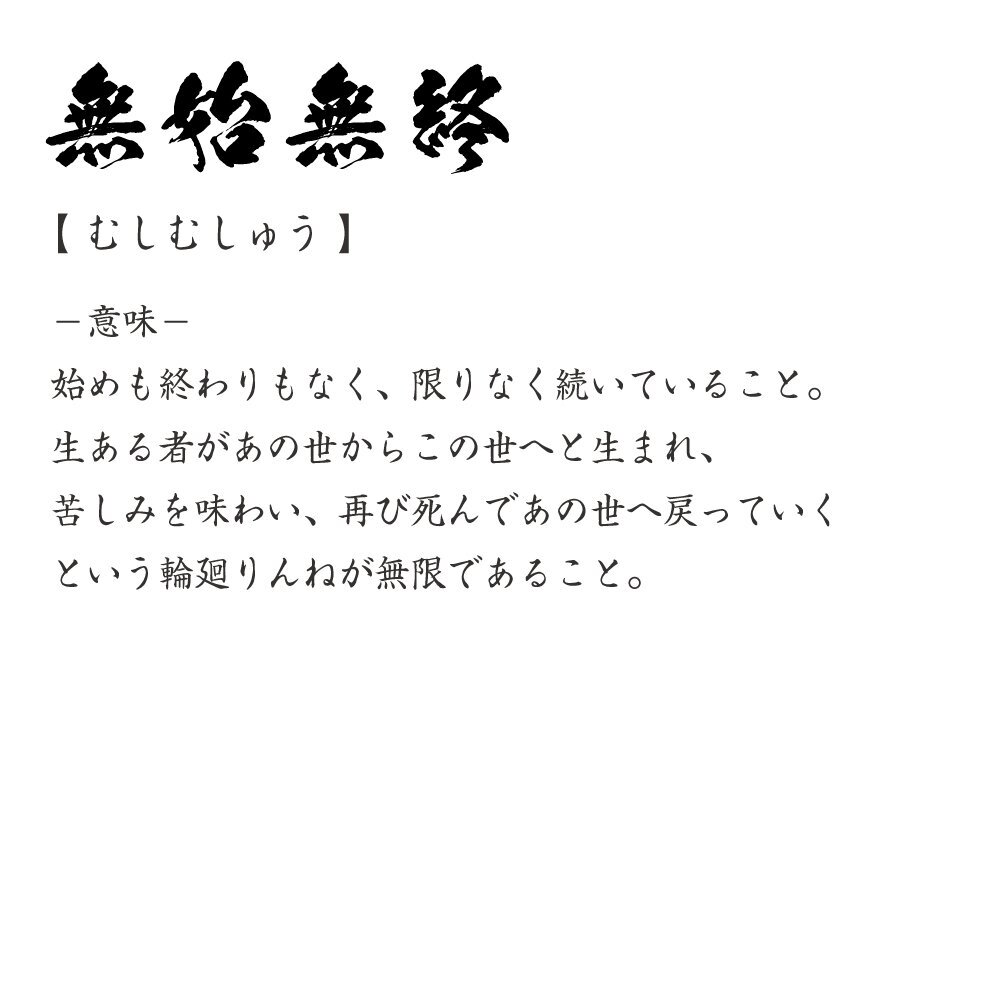 無始無終
【むしむしゅう】
－意味－
始めも終わりもなく、限りなく続いていること。
生ある者があの世からこの世へと生まれ、
苦しみを味わい、再び死んであの世へ戻っていく
という輪廻りんねが無限であること。